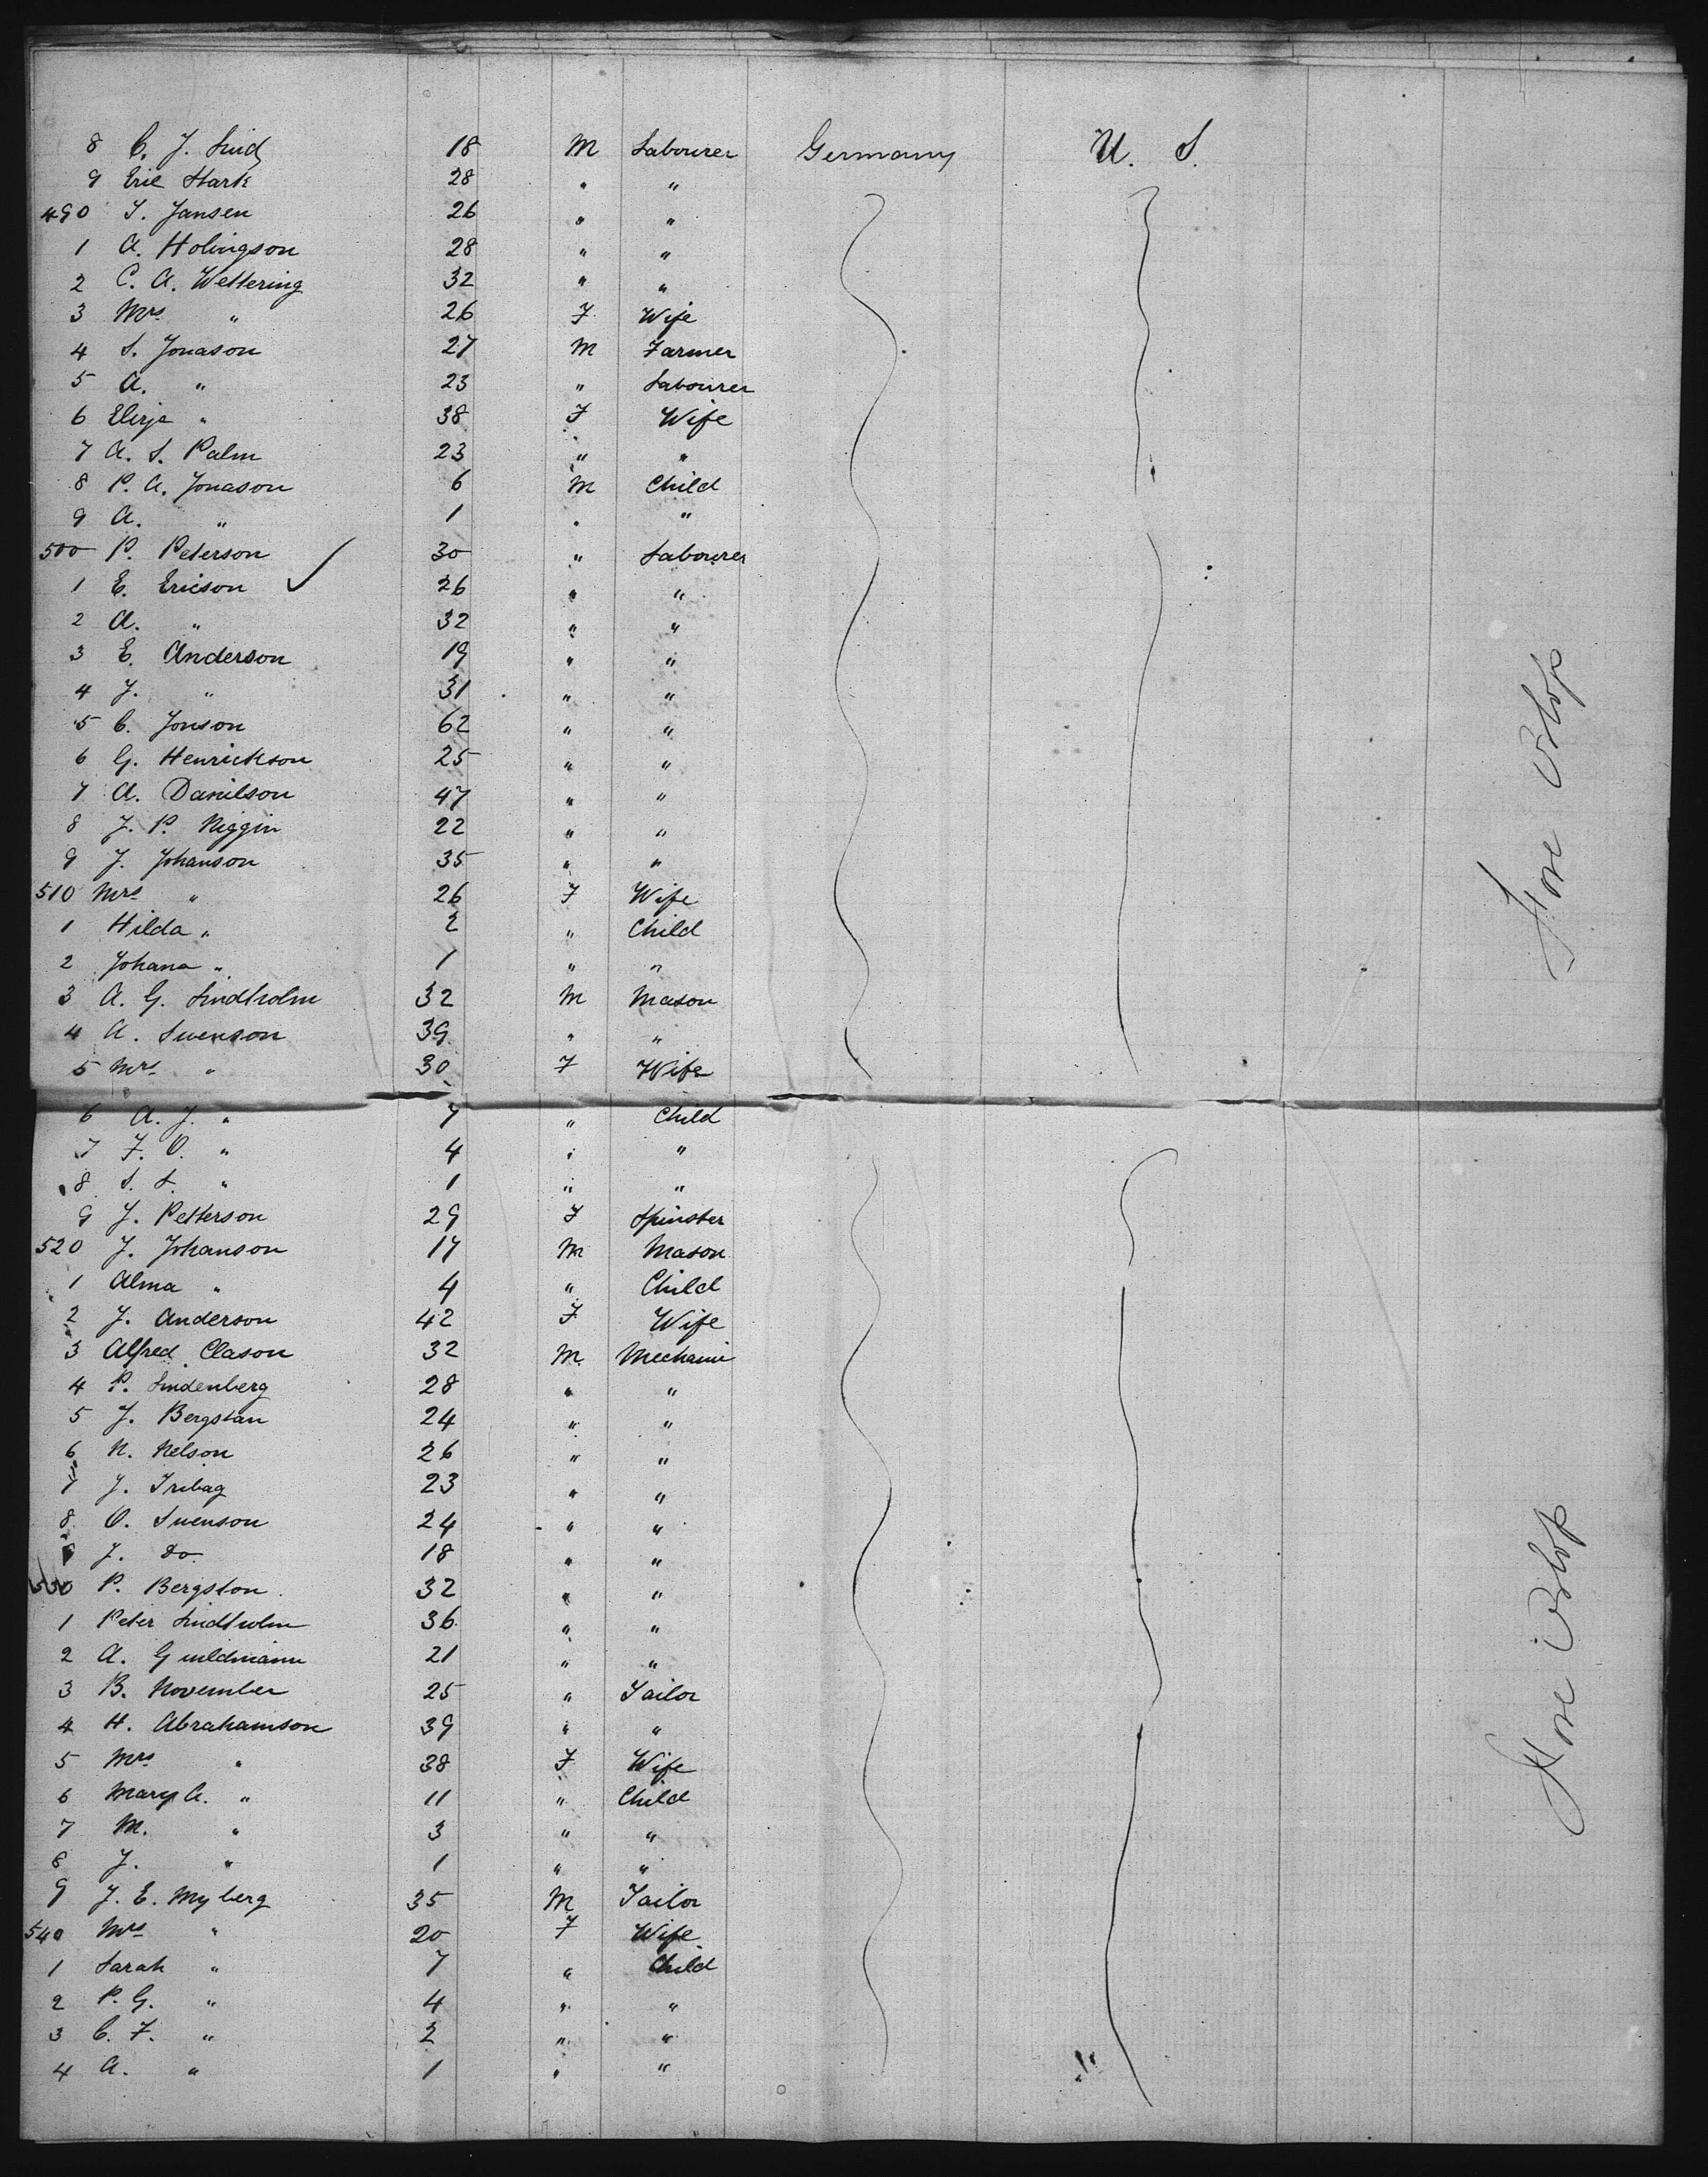 8 C. J. Lind 18 M Labourer Germany U. S.
9 Eric Stark 28 " "
490 J. Jansen 26 " "
1 A. Holingson 28 " "
2 C. A. Wettering 32 " "
3 Mrs " 26 F Wife
4 S. Jonason 27 M Farmer
5 A. " 23 " Labourer
6 " 38 F Wife
7 A. S. Palm 23 " "
8 P. A. Jonason 6 M Child
9 A. " 1 " "
500 P. Peterson 30 " Labourer
1 E. Ericson ✓ 26 " "
2 A. " 32 " "
3 E. Anderson 19 " "
4 J. " 31 " "
5 C. Jonson 62 " "
6 G. Henrickson 25 " "
7 A. Danilson 47 " "
8 J. P. Niggin 22 " "
9 J. Johanson 35 " "
510 Mrs " 26 F Wife
1 Hilda " 2 " Child
2 Johana " 1 " "
3 A. G. Lindholm 32 M Mason
4 A. Swenson 39 " "
5 Mrs " 30 F Wife
6 A. J. " 7 " Child
7 F. O. " 4 " "
8 S. S. " 1 " "
9 J. Petterson 29 F Spinster
520 J. Johanson 17 M Mason
1 Alma " 4 " Child
2 J. Anderson 42 F Wife
3 Alfred Clason 32 M Mechanic
4 P. Lindenberg 28 " "
5 J. Bergstan 24 " "
6 N. Nelson 26 " "
7 J. 23 " "
8 O. Swenson 24 " "
9 J. do 18 " "
530 P. Bergston 32 " "
1 Peter Lindholm 36 " "
2 A. Guildmann 21 " "
3 B. November 25 " Tailor
4 H. Abrahamson 39 " "
5 Mrs " 38 F Wife
6 Mary A. " 11 " Child
7 M. " 3 " "
8 J. " 1 " "
9 J. E. Myberg 35 M Tailor
540 Mrs " 20 F Wife
1 Sarah " 7 " Child
2 P. G. " 4 " "
3 C. F. " 2 " "
4 A. " 1 " "
Fore
Fore